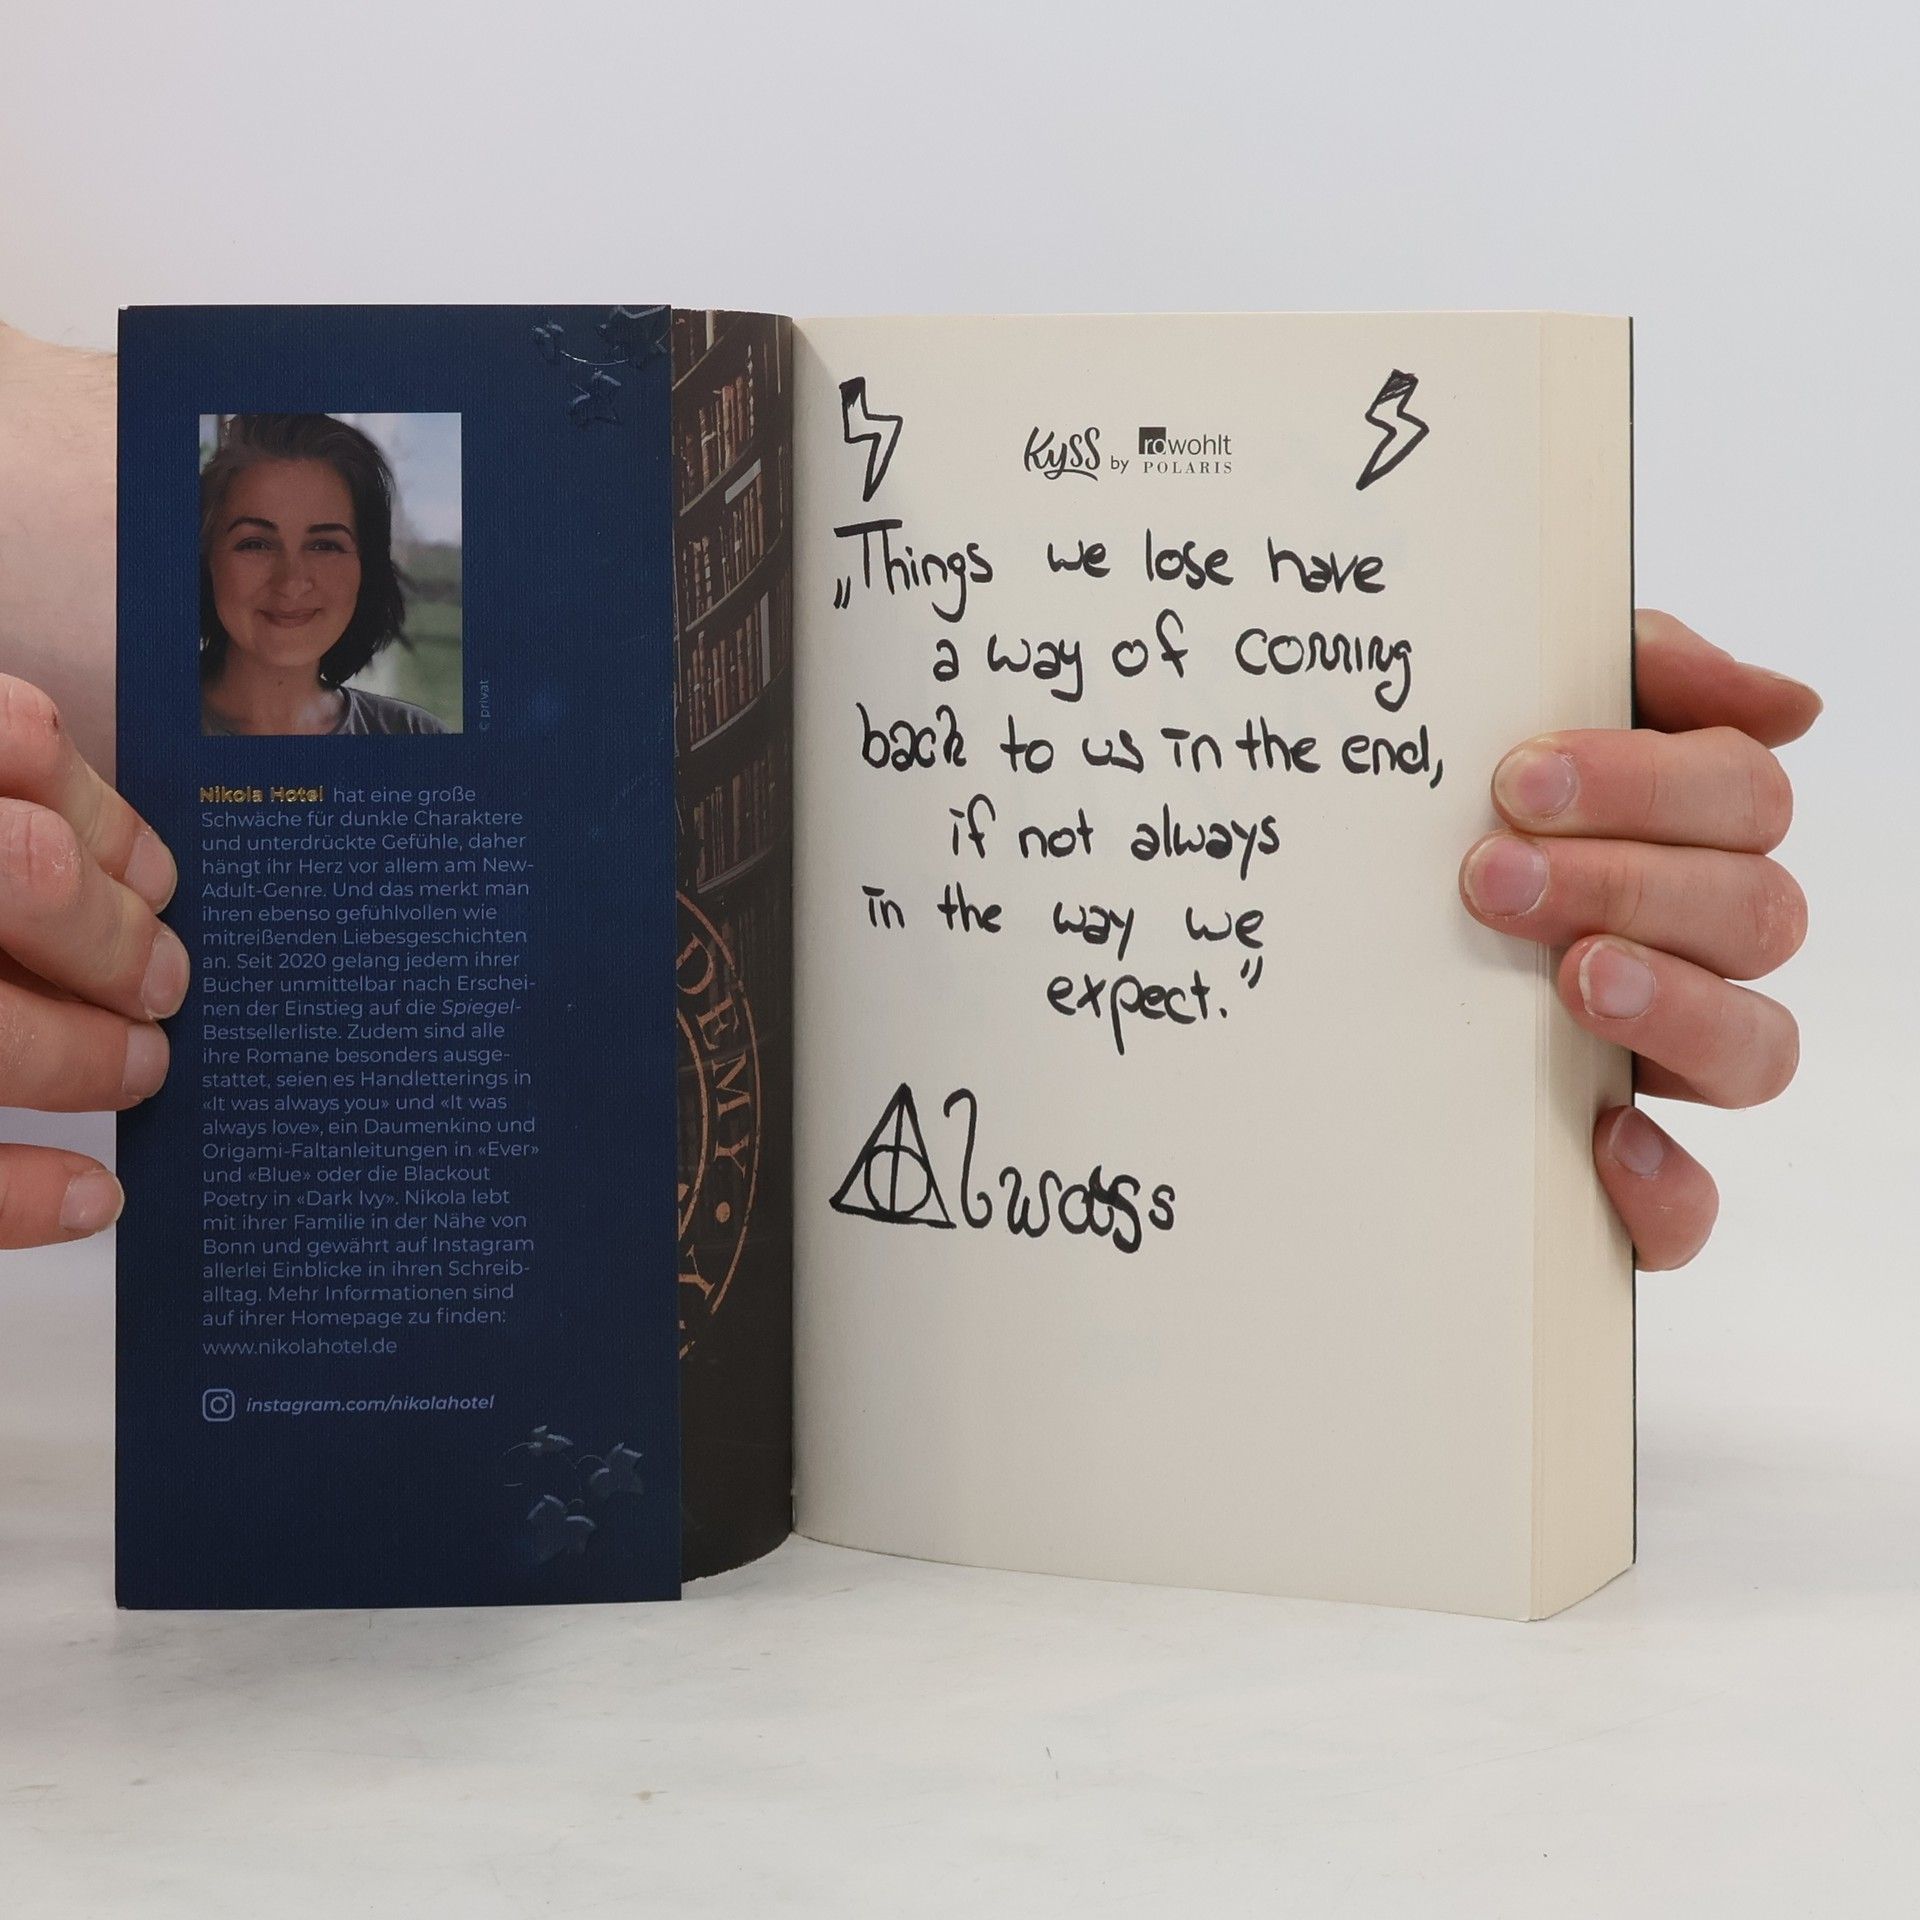 © privat
Nikola Hotel hat eine große
Schwäche für dunkle Charaktere
und unterdrückte Gefühle, daher
hängt ihr Herz vor allem am New-
Adult-Genre. Und das merkt man
ihren ebenso gefühlvollen wie
mitreißenden Liebesgeschichten
an. Seit 2020 gelang jedem ihrer
Bücher unmittelbar nach Erschei-
nen der Einstieg auf die Spiegel-
Bestsellerliste. Zudem sind alle
ihre Romane besonders ausge-
stattet, seien es Handletterings in
«It was always you» und «It was
always love», ein Daumenkino und
Origami-Faltanleitungen in «Ever»
und «Blue» oder die Blackout
Poetry in «Dark Ivy». Nikola lebt
mit ihrer Familie in der Nähe von
Bonn und gewährt auf Instagram
allerlei Einblicke in ihren Schreib-
alltag. Mehr Informationen sind
auf ihrer Homepage zu finden:
www.nikolahotel.de
instagram.com/nikolahotel
DEMY
Kyss by rowohlt
POLARIS
„Things we lose have
a way of coming
back to us in the end,
if not always
in the way we
expect.”
Always